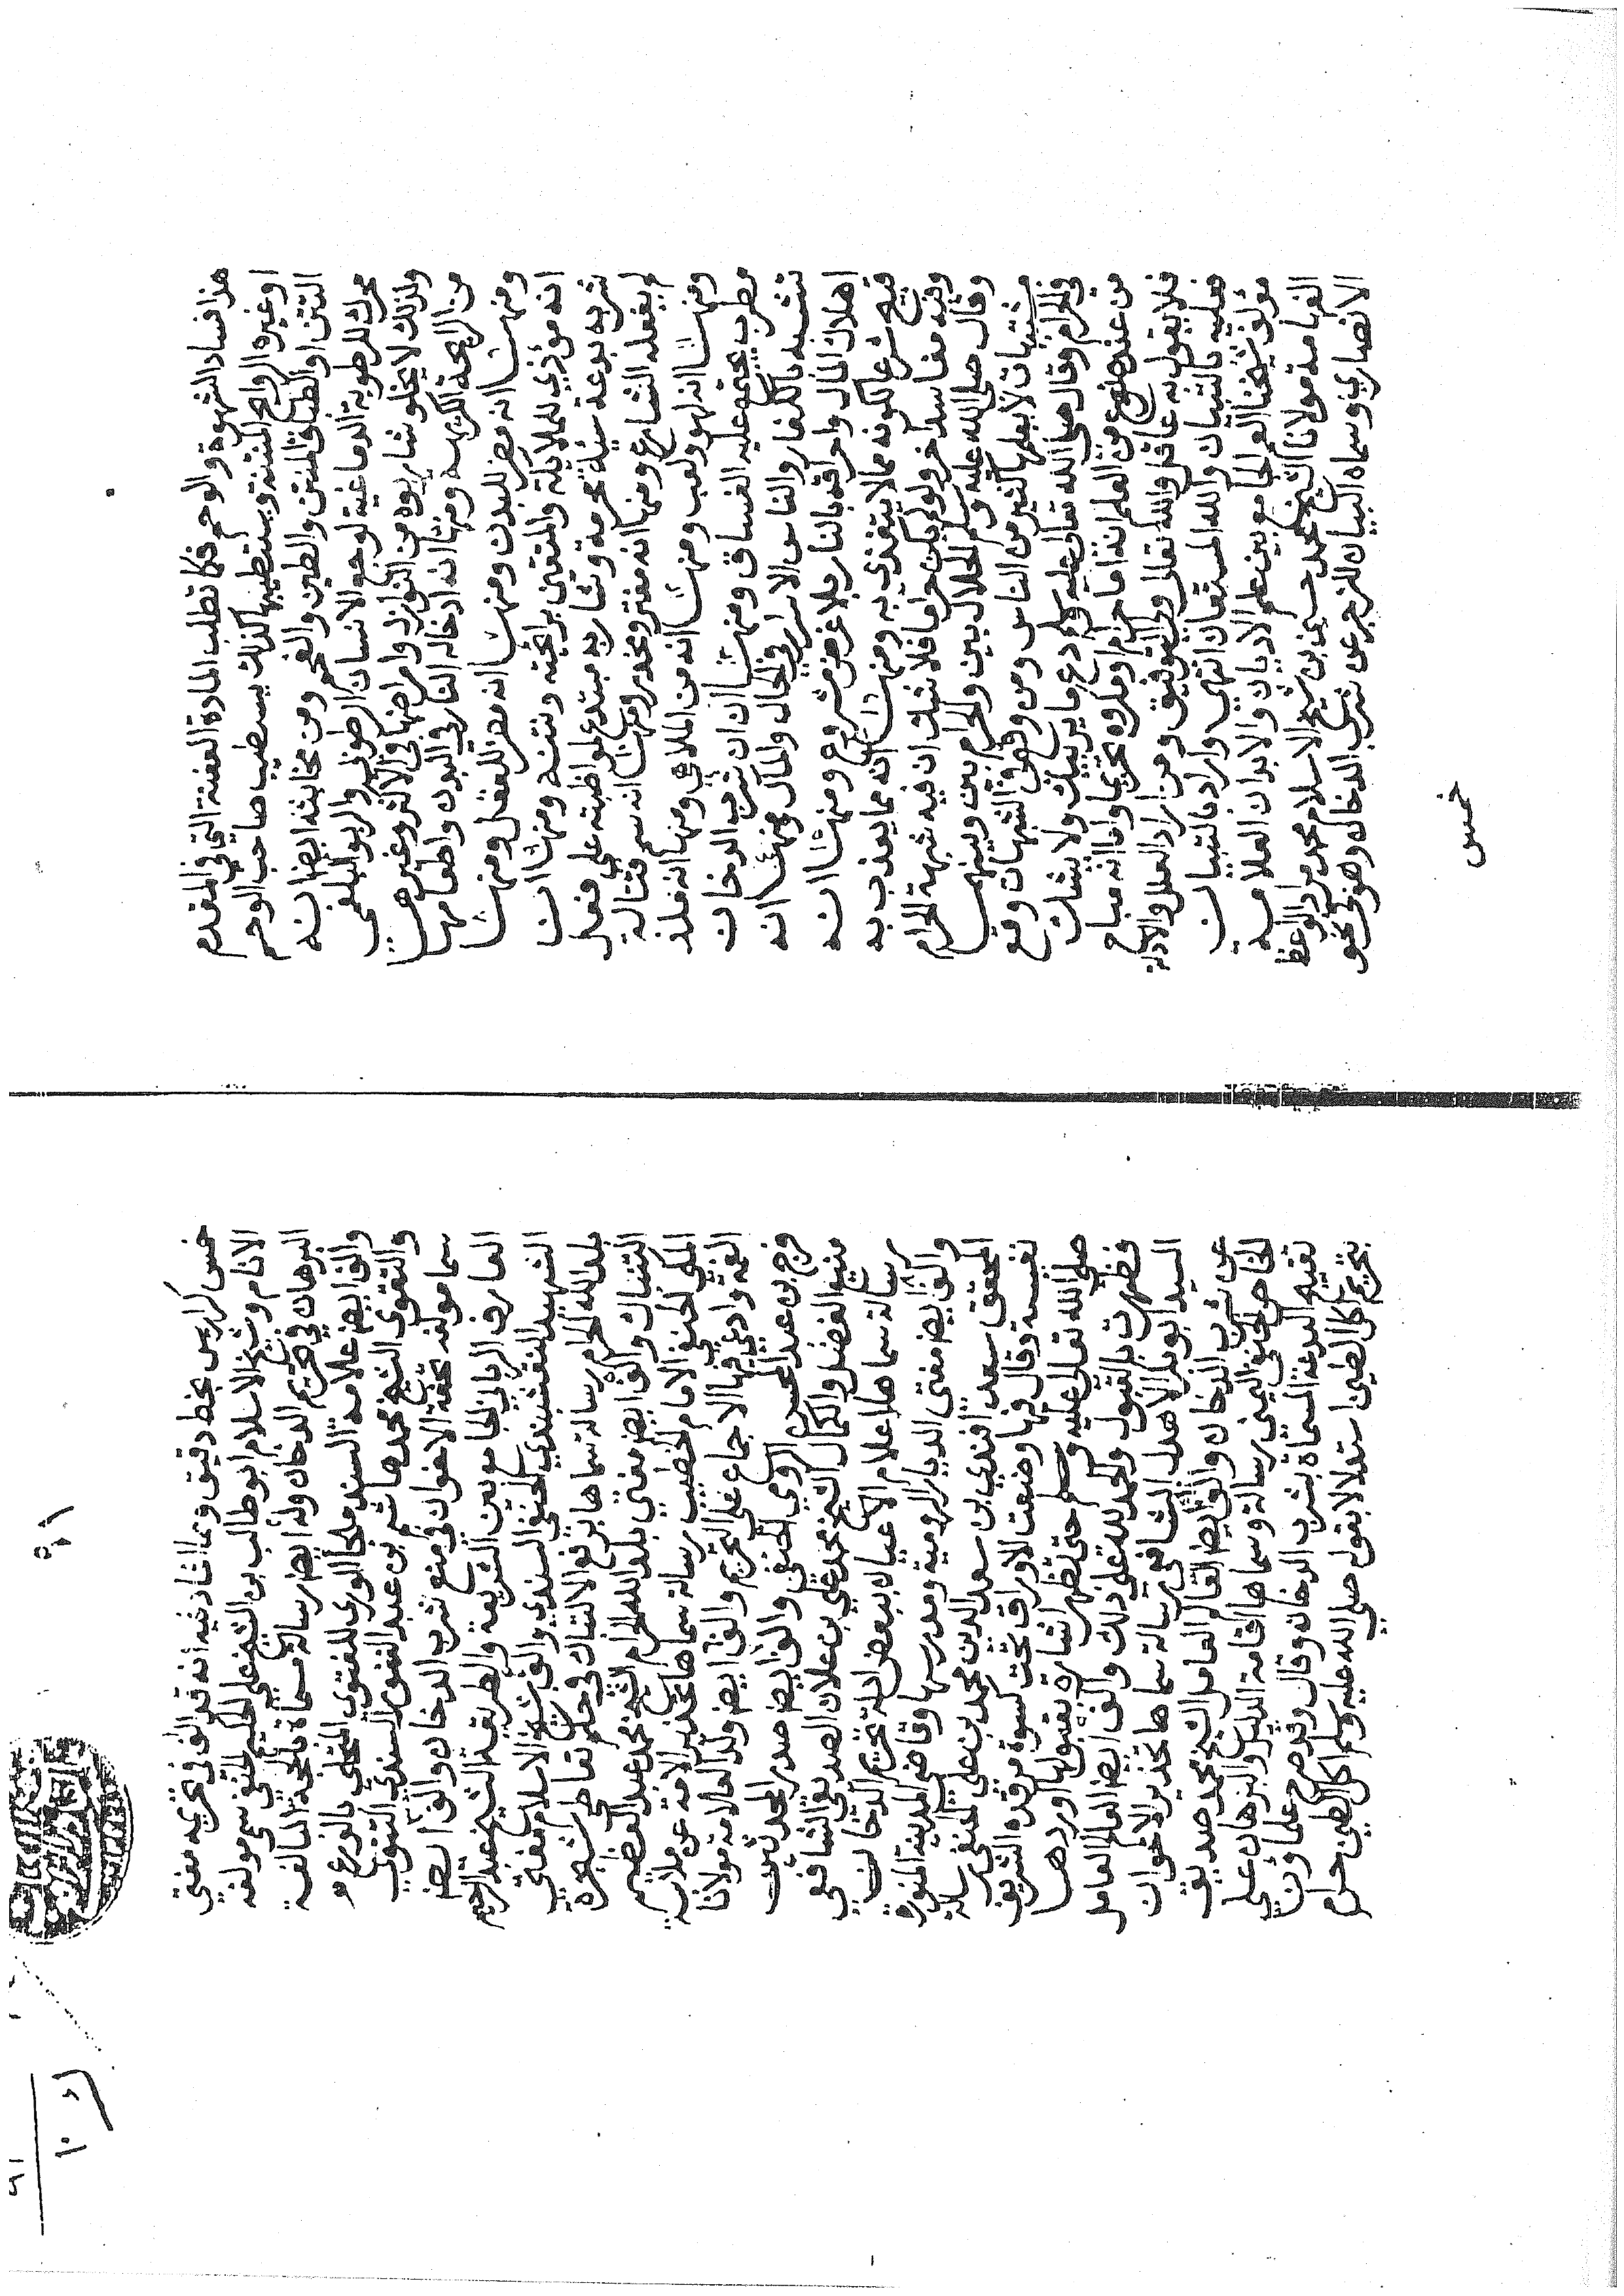 هذا فساد الشهوة والوحم فكما تطلب المادة العفنة التي في المقدم
او غيره الروائح المنتنة ويستطيبها كذلك يستطيب صاحب الوحم
التتن او الطباق المنتن والطين والفحم ومن مخابثه ايضا انه
محرك للرطوبة الدماغية لوجع الاسنان الرطوبي والربو البلغمي
ولذلك لا يخلو شاربوه من النوازل وامراضها في الاكثر وغيرها
من الرايحة الكريهة ومنها انه ادخاله النار في البدن واطعامها
ومنها انه مضر للبدن ومنها انه مضر للعقل ومنها
انه مؤذي للملائكة والمتقين برائحته ونتنه ومنها ان
شربه بدعة سيئة محرمة وشاربه مبتدع لمواظبته على فعل
لم يفعله الشارع ومنها انه مفتر ومخدر ومنها انه سم قتاله
ومنها انه لهو ولعب ومنها انه من الملاهي ومنها انه ملذ
مطرب يجتمع عليه الفساق ومنها ان شرب الدخان
تشبه بالكفار والناس الاشرار في الحال والمال ومنها انه
اهلاك المال واحراقه بالنار بلا غرض مشروع ومنها انه
قبيح شرعا لكونه مما لا يتغذي به ومنها انه مما يعذب به
وفيه مفاسد اخر ولو لم يكن حراما فلا شك ان فيه شبهة الحرام
وقال صلى الله عليه وسلم الحلال بين والحرام بين وبينهما
مشتبهات لا يعلمها كثير من الناس ومن وقع في الشبهات وقع
في الحرام وقال صلى الله تعالى عليه وسلم دع ما يريبك ولا يشك
من عنده طلوع من العلم انه اما حرام او مكروه تحريما واما انه مباح
فلا يقول به عاقل والله تعالى ولي التوفيق ومن اراد العلل والادلة
فعليه بالتبيان والله المستعان انتهى واراد بالتبيان
مؤلف شيخنا العم الجامع بين علم الاديان والابدان العلامة
الفهامة مولانا الشيخ محمد حسين بن شيخ الاسلام محمد مراد الواعظ
الانصاري وسماه البيان للزجر عن شرب الدخان وهو في نحو
خمس
خمس كراريس بخط دقيق ومما افاد فيه انه قد الف في تحريمه مفتي
الانام وشيخ الاسلام ابو طالب بن الشيخ علي الحكيم الحنفي سمى مولفه
البرهان في تحريم الدخان وله ايضا رسالة مسماة بالحجة البالغة
والف ايضا علامة السند ملجأ الورى للفتوى المتحلي بالورع
والتقوى الشيخ محمد هاشم بن عبد الغفور السندي التتوي
سما مولفه تحفة الاخوان في منع شرب الدخان والف ايضا
العارف الرباني الجامع بين الشريعة والطريقة الشيخ عبد الرحيم
الشهيد النقشبندي الحنفي السندي والف شيخ الاسلام مفتي
بلد الله الحرام رسالة سماها برفع الالتباك في حكم تعاطي شجرة
التنباك والف ايضا مفتي بلد الله الحرام الشيخ محمد عبد العظيم
المكي الحنفي الامام الخطيب رسالة سماها تحذير الامة عن ملابسة
الغمة وادعي فيها الاجماع على التحريم والف ايضا ولد العلامة مولانا
فرج بن عبد المحسن الرومي الحنفي والف ايضا صدر المحدثين
منبع الفضل والكمال الشيخ محمد علي بن علان الصديقي الشافعي
رسالة سماها اعلام الاعيان ببعض ادلة تحريم الدخان
والف ايضا مفتي الديار الرومية ومدرسها وقاضي المدينة المنورة
المحقق سعدي افندي بن سعد الدين محمد بن علي الحنفي رسالة
نفيسة وقال فيها وضعت الاوراق تحت كسوة مرقده الشريف
صلى الله تعالى عليه وسلم حتى تظهر اشارة بقبولها او ردها
فظهرت بالقبول والحمد لله على ذلك والف ايضا العالم العامل
السيد ابو بكر الاهدل الشافعي رسالة سماها تحذير الاخوان
عن شرب الدخان والف ايضا العالم العامل الشيخ محمد صديق
الخاص الحنفي اليمني رسالة وسماها اقامة الدليل والبرهان على
تقبيح البدعة المسماة بشرب الدخان وقال وقد صرح علماؤنا
بتحريم اكل الطين استدلالا بقوله صلى الله عليه وسلم اكل الطين حرام